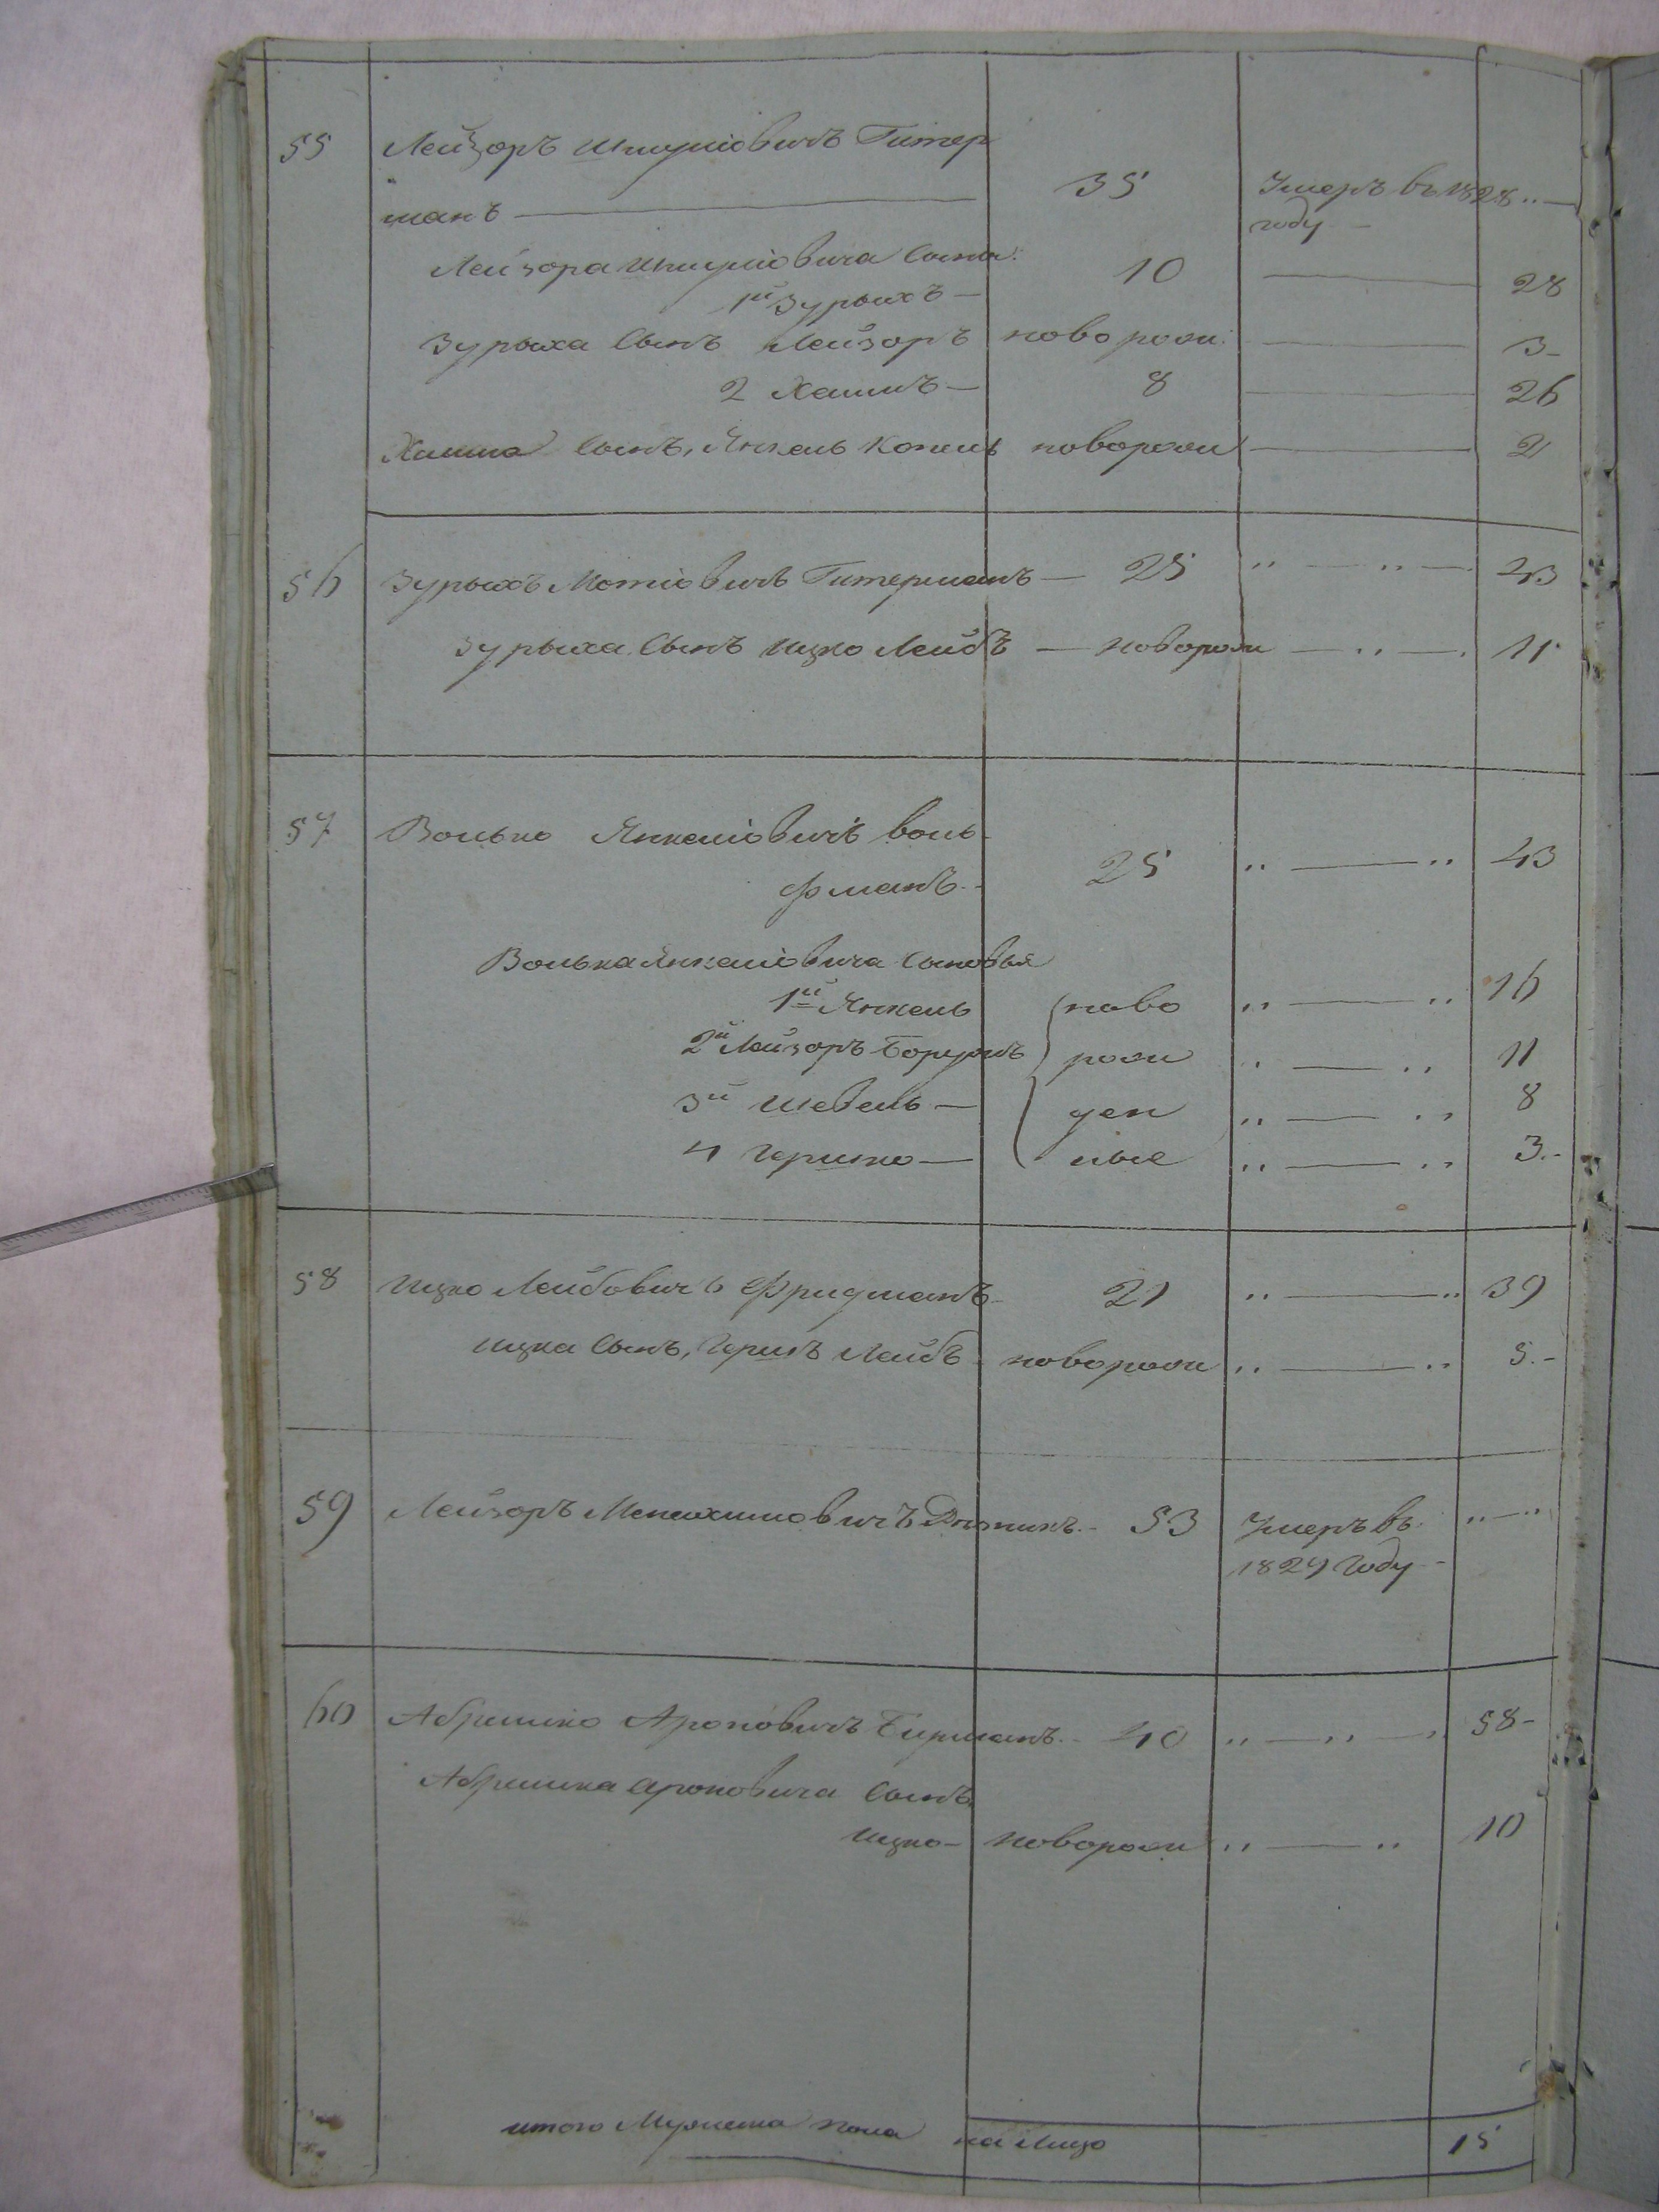 55 Лейзоръ Шмуліовичъ Гитер
манъ — 35 Умеръ въ 1828 .. —
году —
Лейзора Шмуліовича сынъ: 10 — 28
1й Зурыхъ —
Зурыха сынъ Лейзоръ новорож: — 3 -
2 Хаимъ — 8 — 26
Хаима сынъ, Янкель Копель новорож — 2
56 Зурыхъ Мотіовичъ Гитерманъ — 25 .. — .. — 43
Зурыха сынъ Ицко Лейбъ — новорож — .. — 11
57 Волько Янкеліовичъ Воль-
фманъ - 25 .. — .. 43
Волька Янкеліовича сыновья
1й Янкель ново .. — .. 16
2й Лейзоръ Борухъ рож .. — .. 11
3й Шевель — ден .. — .. 8
4 Гершко — ные .. — .. 3 -
58 Ицко Лейбовичъ Фридманъ 21 .. — .. 39
Ицка сынъ, Гершъ Лейбъ новорож .. — .. 5 -
59 Лейзоръ Менахимовичъ - 53 Умеръ въ .. — ..
1829 году -
60 Абрамко Ароновичъ Бирманъ - 40 .. — .. — 58 -
Абрамка Ароновича сынъ,
Ицко — новорож .. — .. 10
итого Мужеска пола на лицо 15